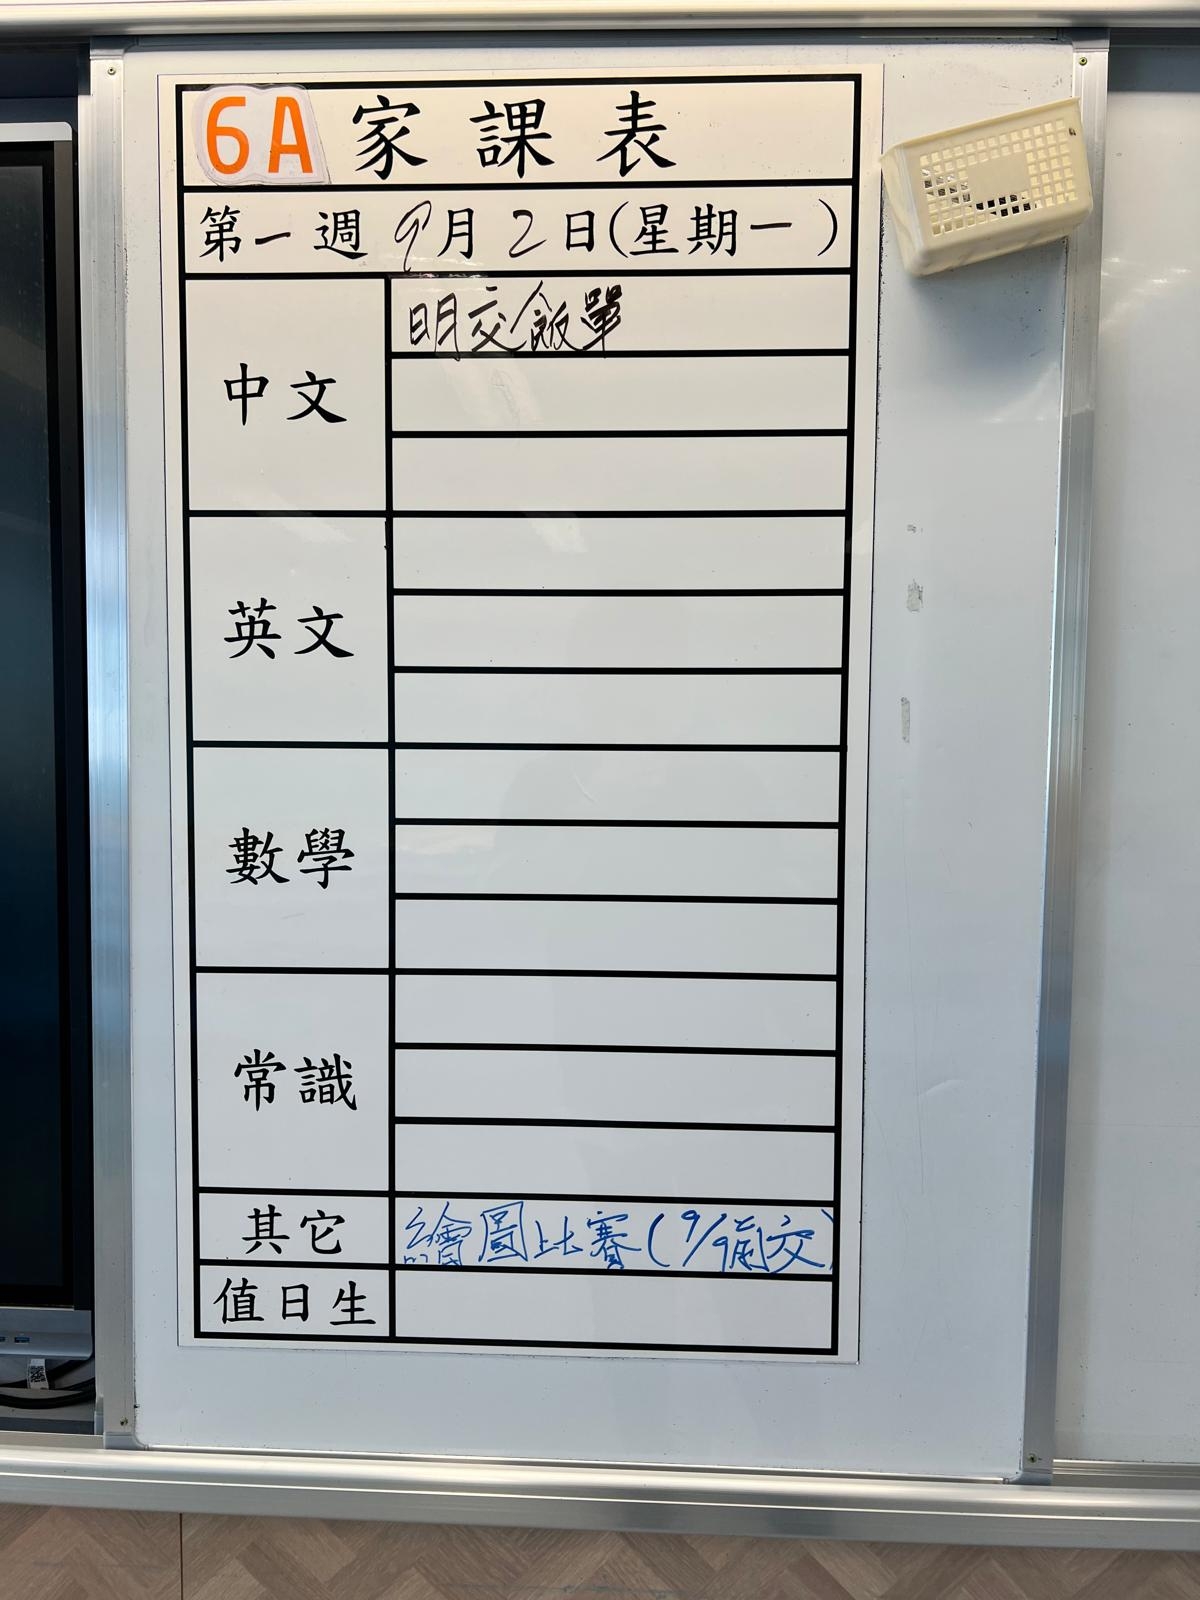 6A 家課表
第一週 9月2日(星期一)
中文
明交飯單
英文
數學
常識
其它
繪圖比賽(9/9前交)
值日生